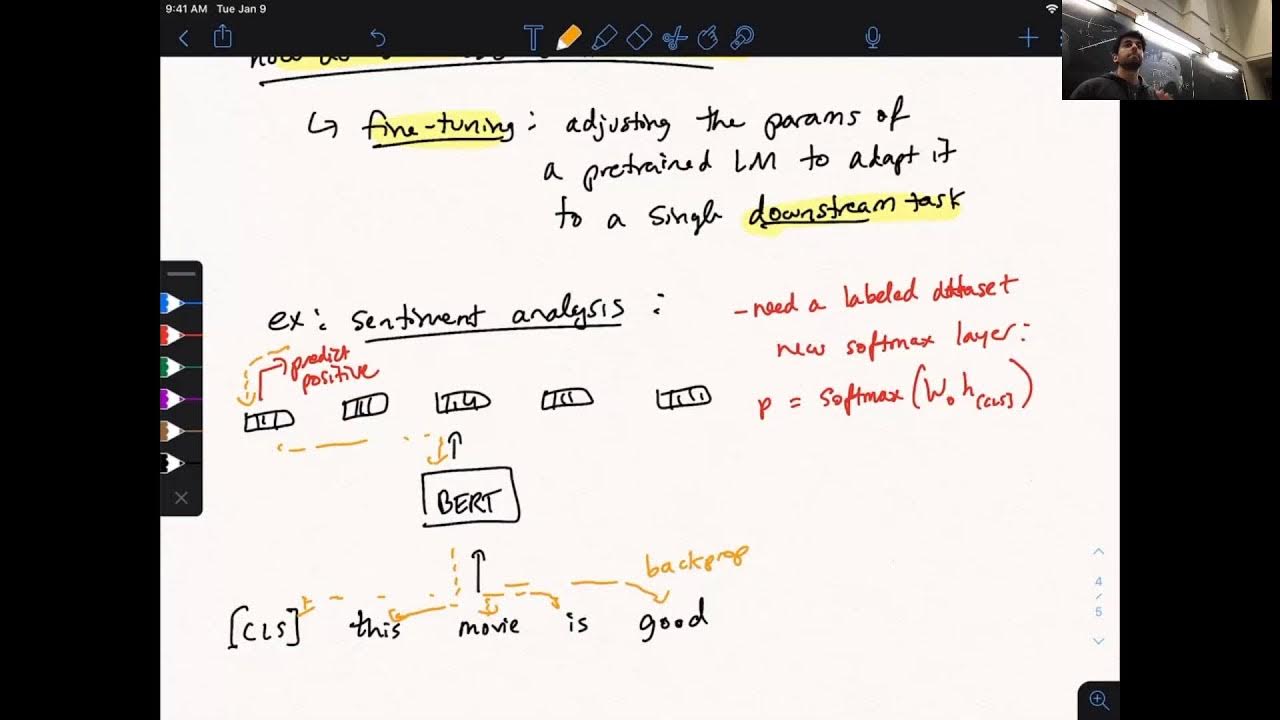 9:41 AM Tue Jan 9
↳ fine-tuning: adjusting the params of
a pretrained LM to adapt it
to a single downstream task
ex: sentiment analysis :
- need a labeled dataset
new softmax layer:
p = softmax(Wo h[CLS])
predict
positive
BERT
backprop
[CLS] this movie is good
4
/
5